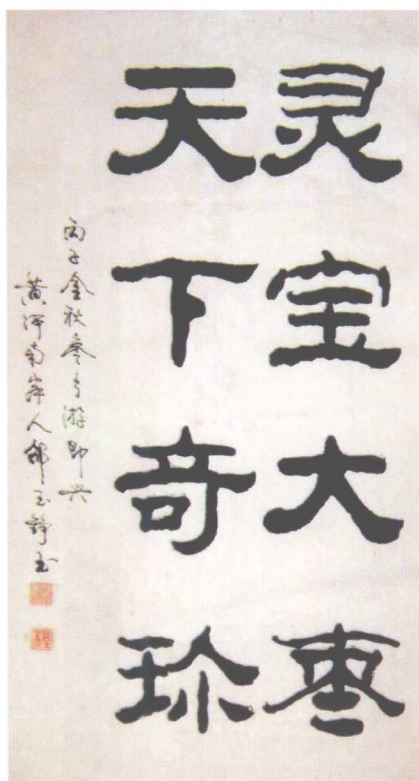 灵宝大枣
天下奇珍
丙子金秋枣乡游即兴
黄河南岸人 玉